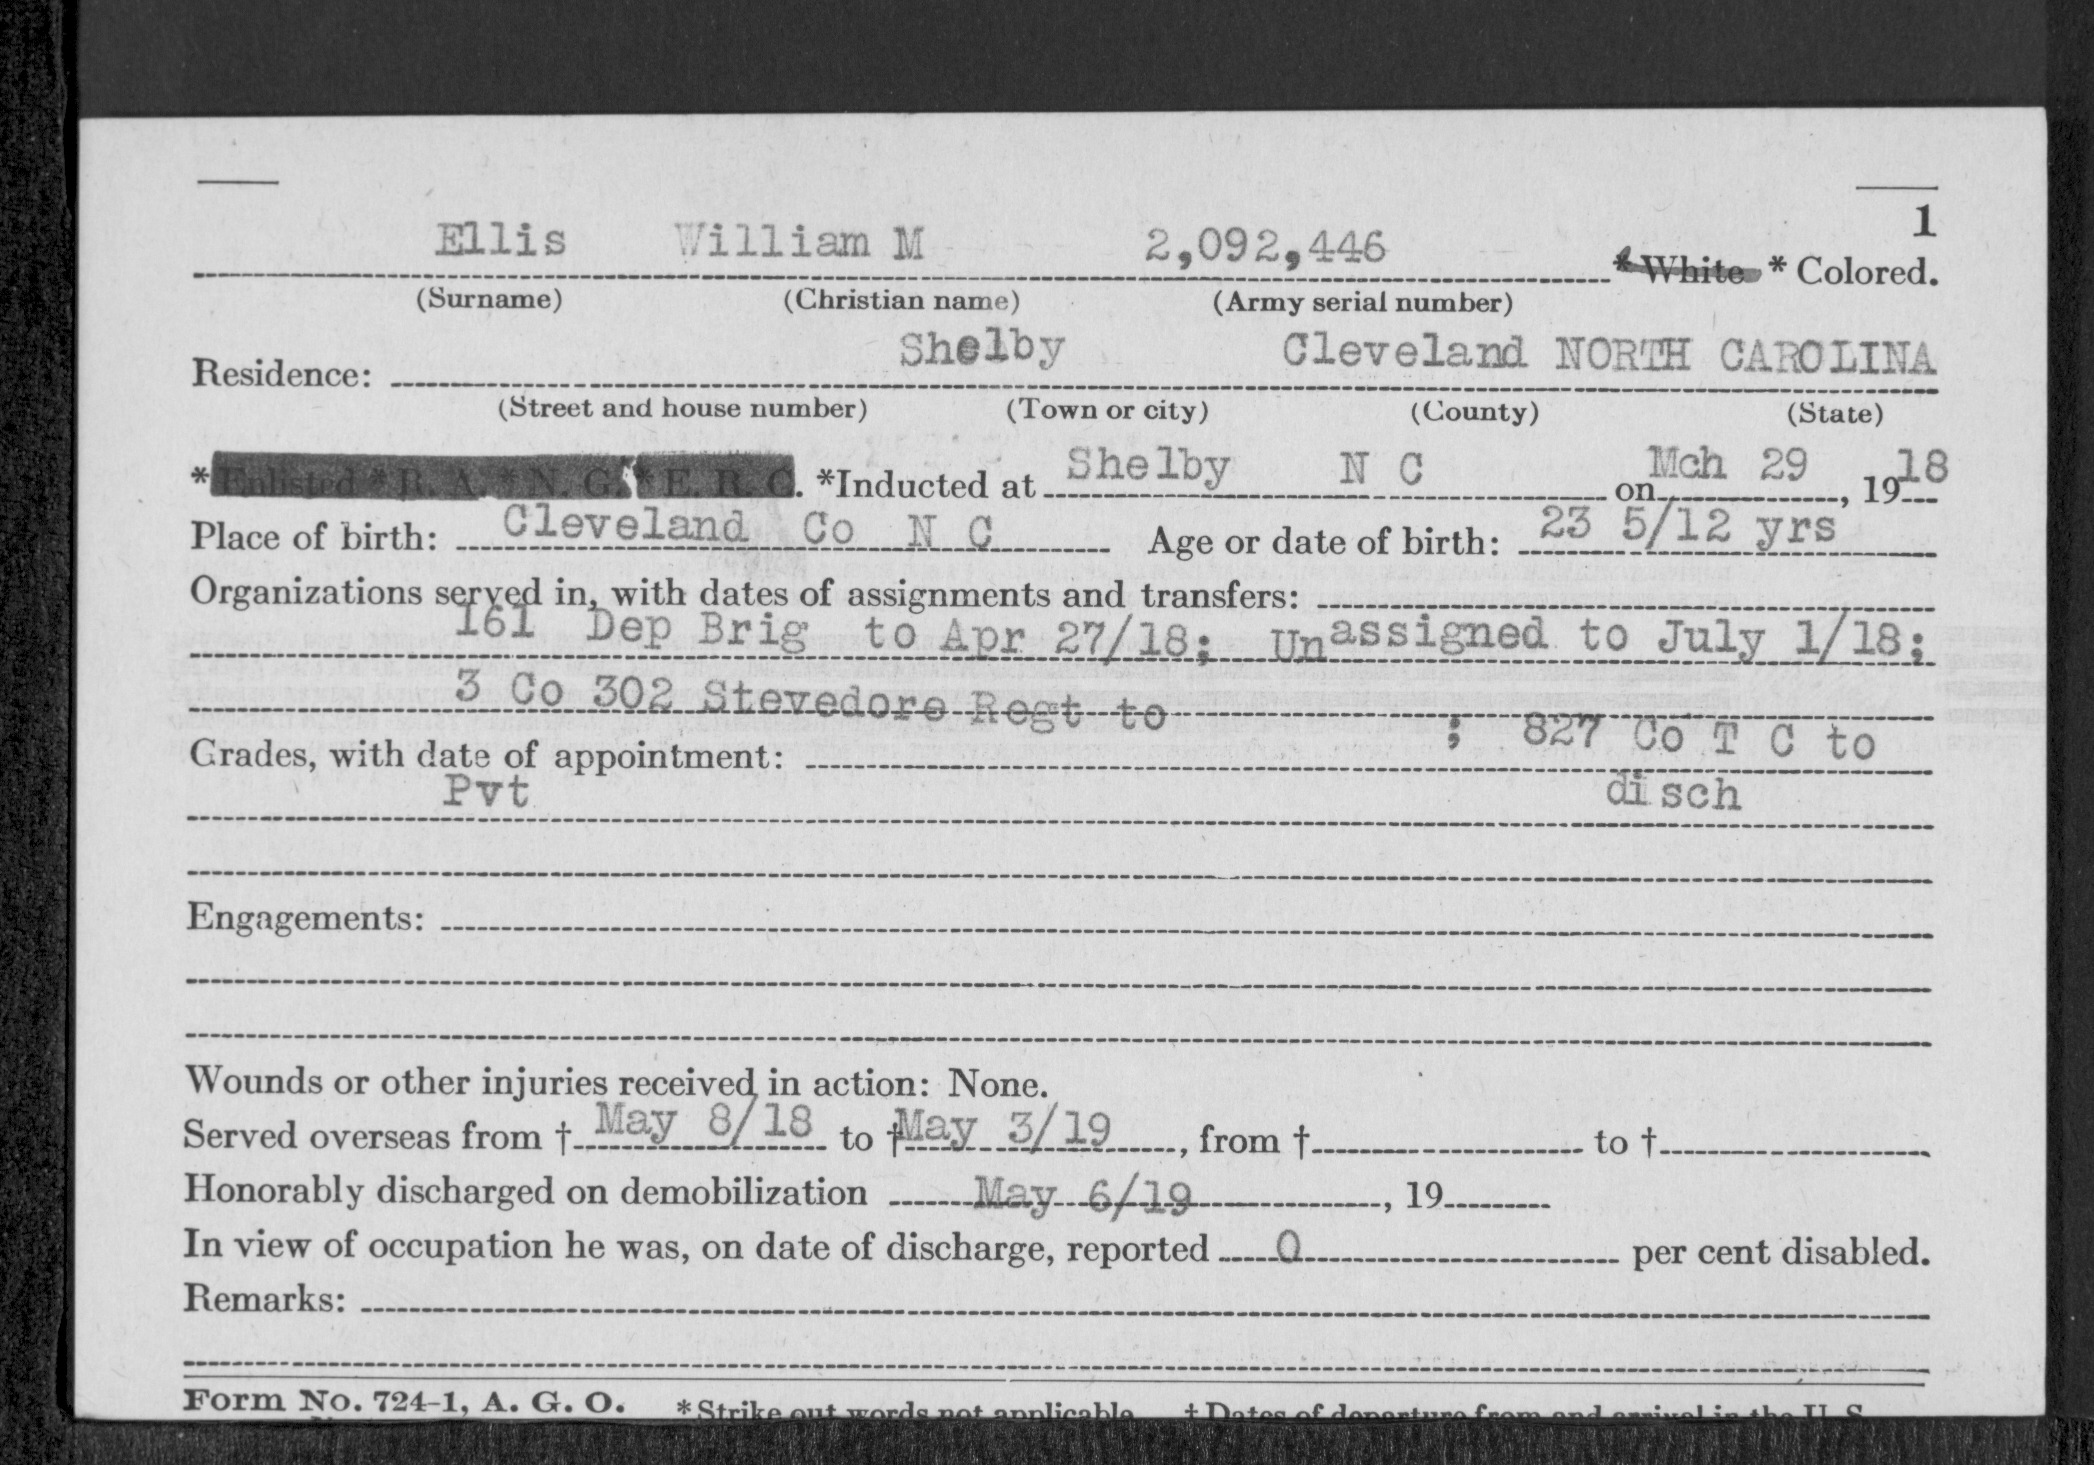 1
Ellis William M 2,092,446 * White * Colored.
(Surname) (Christian name) (Army serial number)
Residence: Shelby Cleveland NORTH CAROLINA
(Street and house number) (Town or city) (County) (State)
* Enlisted * R. A. * N. G. * E. R. C. *Inducted at Shelby N C on Mch 29, 1918
Place of birth: Cleveland Co N C Age or date of birth: 23 5/12 yrs
Organizations served in, with dates of assignments and transfers:
161 Dep Brig to Apr 27/18; Unassigned to July 1/18;
3 Co 302 Stevedore Regt to ; 827 Co T C to
Grades, with date of appointment:
Pvt disch
Engagements:
Wounds or other injuries received in action: None.
Served overseas from † May 8/18 to † May 3/19, from † to †
Honorably discharged on demobilization May 6/19, 19
In view of occupation he was, on date of discharge, reported 0 per cent disabled.
Remarks:
Form No. 724-1, A. G. O. *Strike out words not applicable † Dates of departure from and arrival in the U. S.